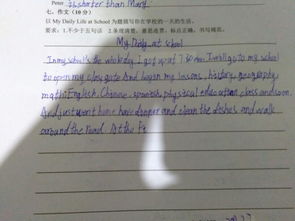 Peter is shorter than Mary.
七、作文（10分）
以 My Daily Life at School 为题描写你在学校的一天的生活。
要求：1.不少于五句话 2.条理清楚，语意连贯，标点正确，书写规范。
My Daily at school
In my school's the whole day. I get up at 7:30 am. I will go to my school
to open my class gate And began my lessons, history, geography
math, English, Chinese, spanish, physical education class and soon.
And just went home have dinner and clean the dishes and walk
around the road. At the